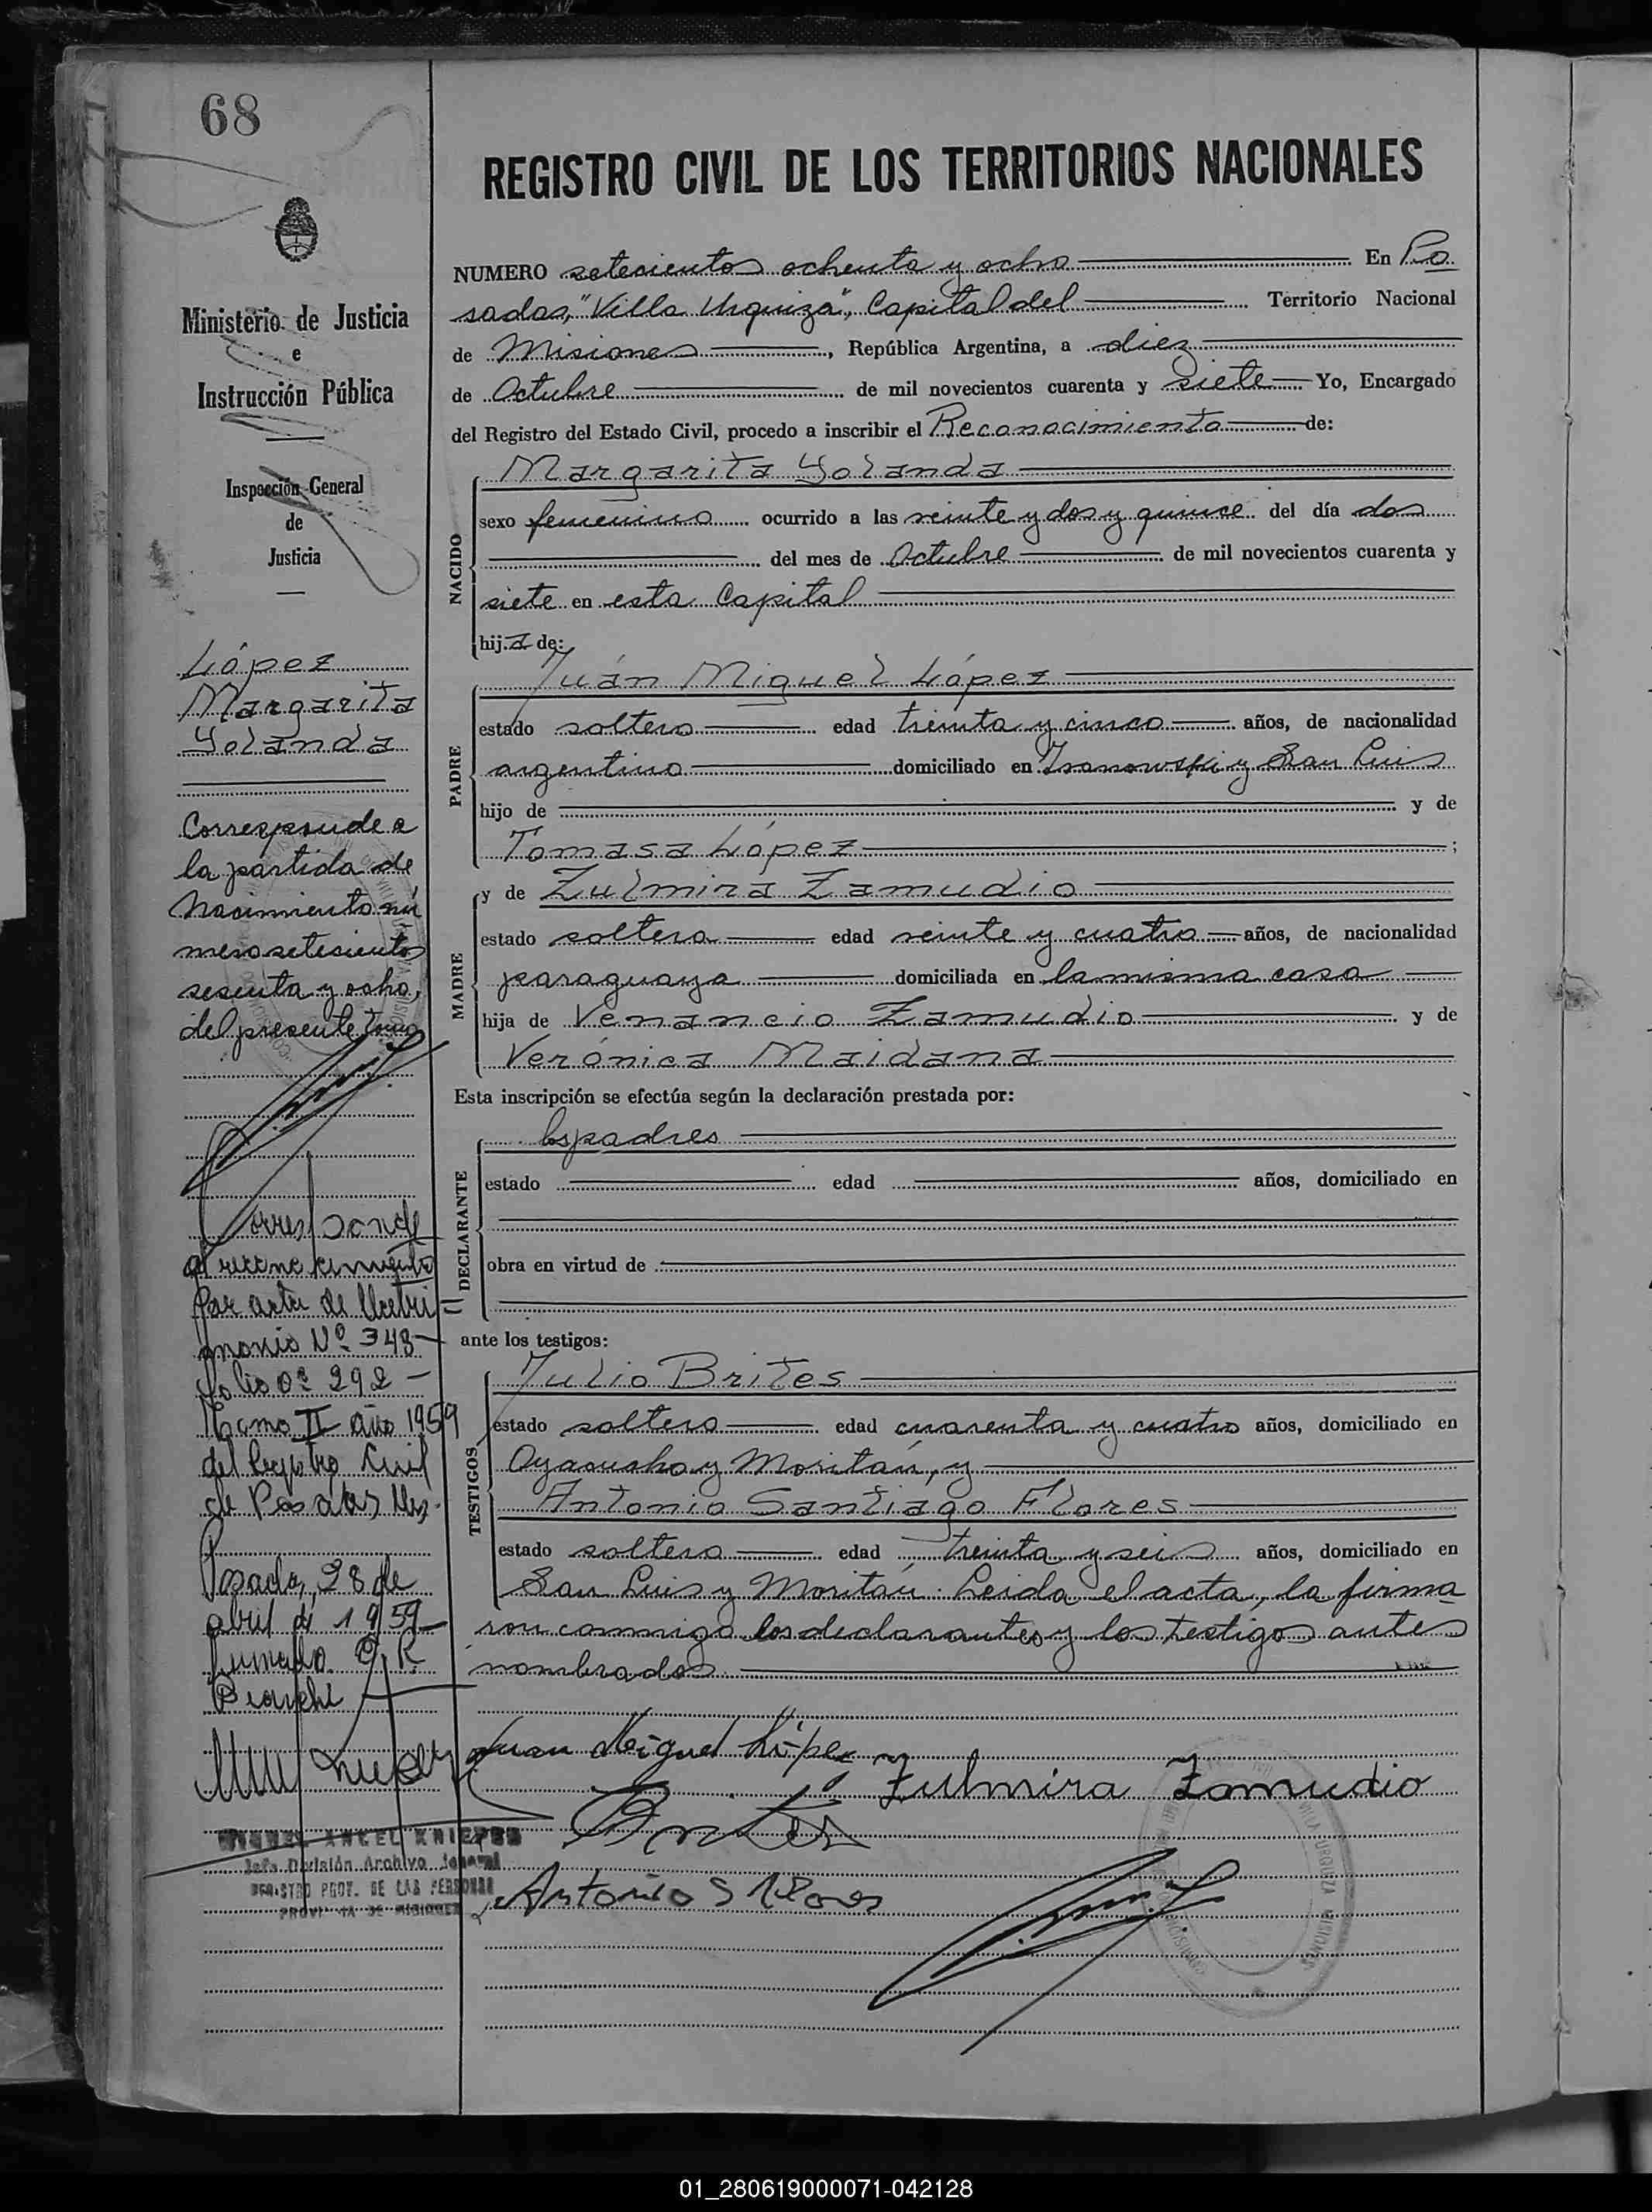 68
Ministerio de Justicia
e
Instrucción Pública
Inspección General
de
Justicia
López
Margarita
Yolanda
Corresponde a
la partida de
Nacimiento nú
mero setecientos
sesenta y ocho,
del presente tomo
Corresponde
al reconocimiento
por acta de Matri
monio Nº 348
folio Nº 292
Tomo II año 1959
del Registro Civil
de Posadas Mis.
Posadas, 28 de
abril de 1959
firmado
Bianchi
MIGUEL ANGEL KNIEPSS
Jefe División Archivo General
REGISTRO PROV. DE LAS PERSONAS
PROVINCIA DE MISIONES
REGISTRO CIVIL DE LOS TERRITORIOS NACIONALES
NUMERO setecientos ochenta y ocho En Po
sadas, "Villa Urquiza", Capital del Territorio Nacional
de Misiones, República Argentina, a diez
de Octubre de mil novecientos cuarenta y siete Yo, Encargado
del Registro del Estado Civil, procedo a inscribir el Reconocimiento de:
NACIDO
Margarita Yolanda
sexo femenino ocurrido a las veinte y dos y quince del día dos
del mes de Octubre de mil novecientos cuarenta y
siete en esta Capital
hija de:
PADRE
Juán Miguel López
estado soltero edad treinta y cinco años, de nacionalidad
argentino domiciliado en y San Luis
hijo de y de
Tomasa López;
MADRE
y de Zulmira Zamudio
estado soltera edad veinte y cuatro años, de nacionalidad
paraguaya domiciliada en la misma casa
hija de Venancio Zamudio y de
Verónica Maidana
Esta inscripción se efectúa según la declaración prestada por:
DECLARANTE
los padres
estado edad años, domiciliado en
obra en virtud de
ante los testigos:
TESTIGOS
Julio Brites
estado soltero edad cuarenta y cuatro años, domiciliado en
Ayacucho y Moritán, y
Antonio Santiago Flores
estado soltero edad treinta y seis años, domiciliado en
San Luis y Moritán. Leida el acta, la firma
ron conmigo los declarantes y los testigos antes
nombrados
Juan Miguel López
Zulmira Zamudio
Brites
Antonio S Flores
VILLA URQUIZA MISIONES
01_280619000071-042128